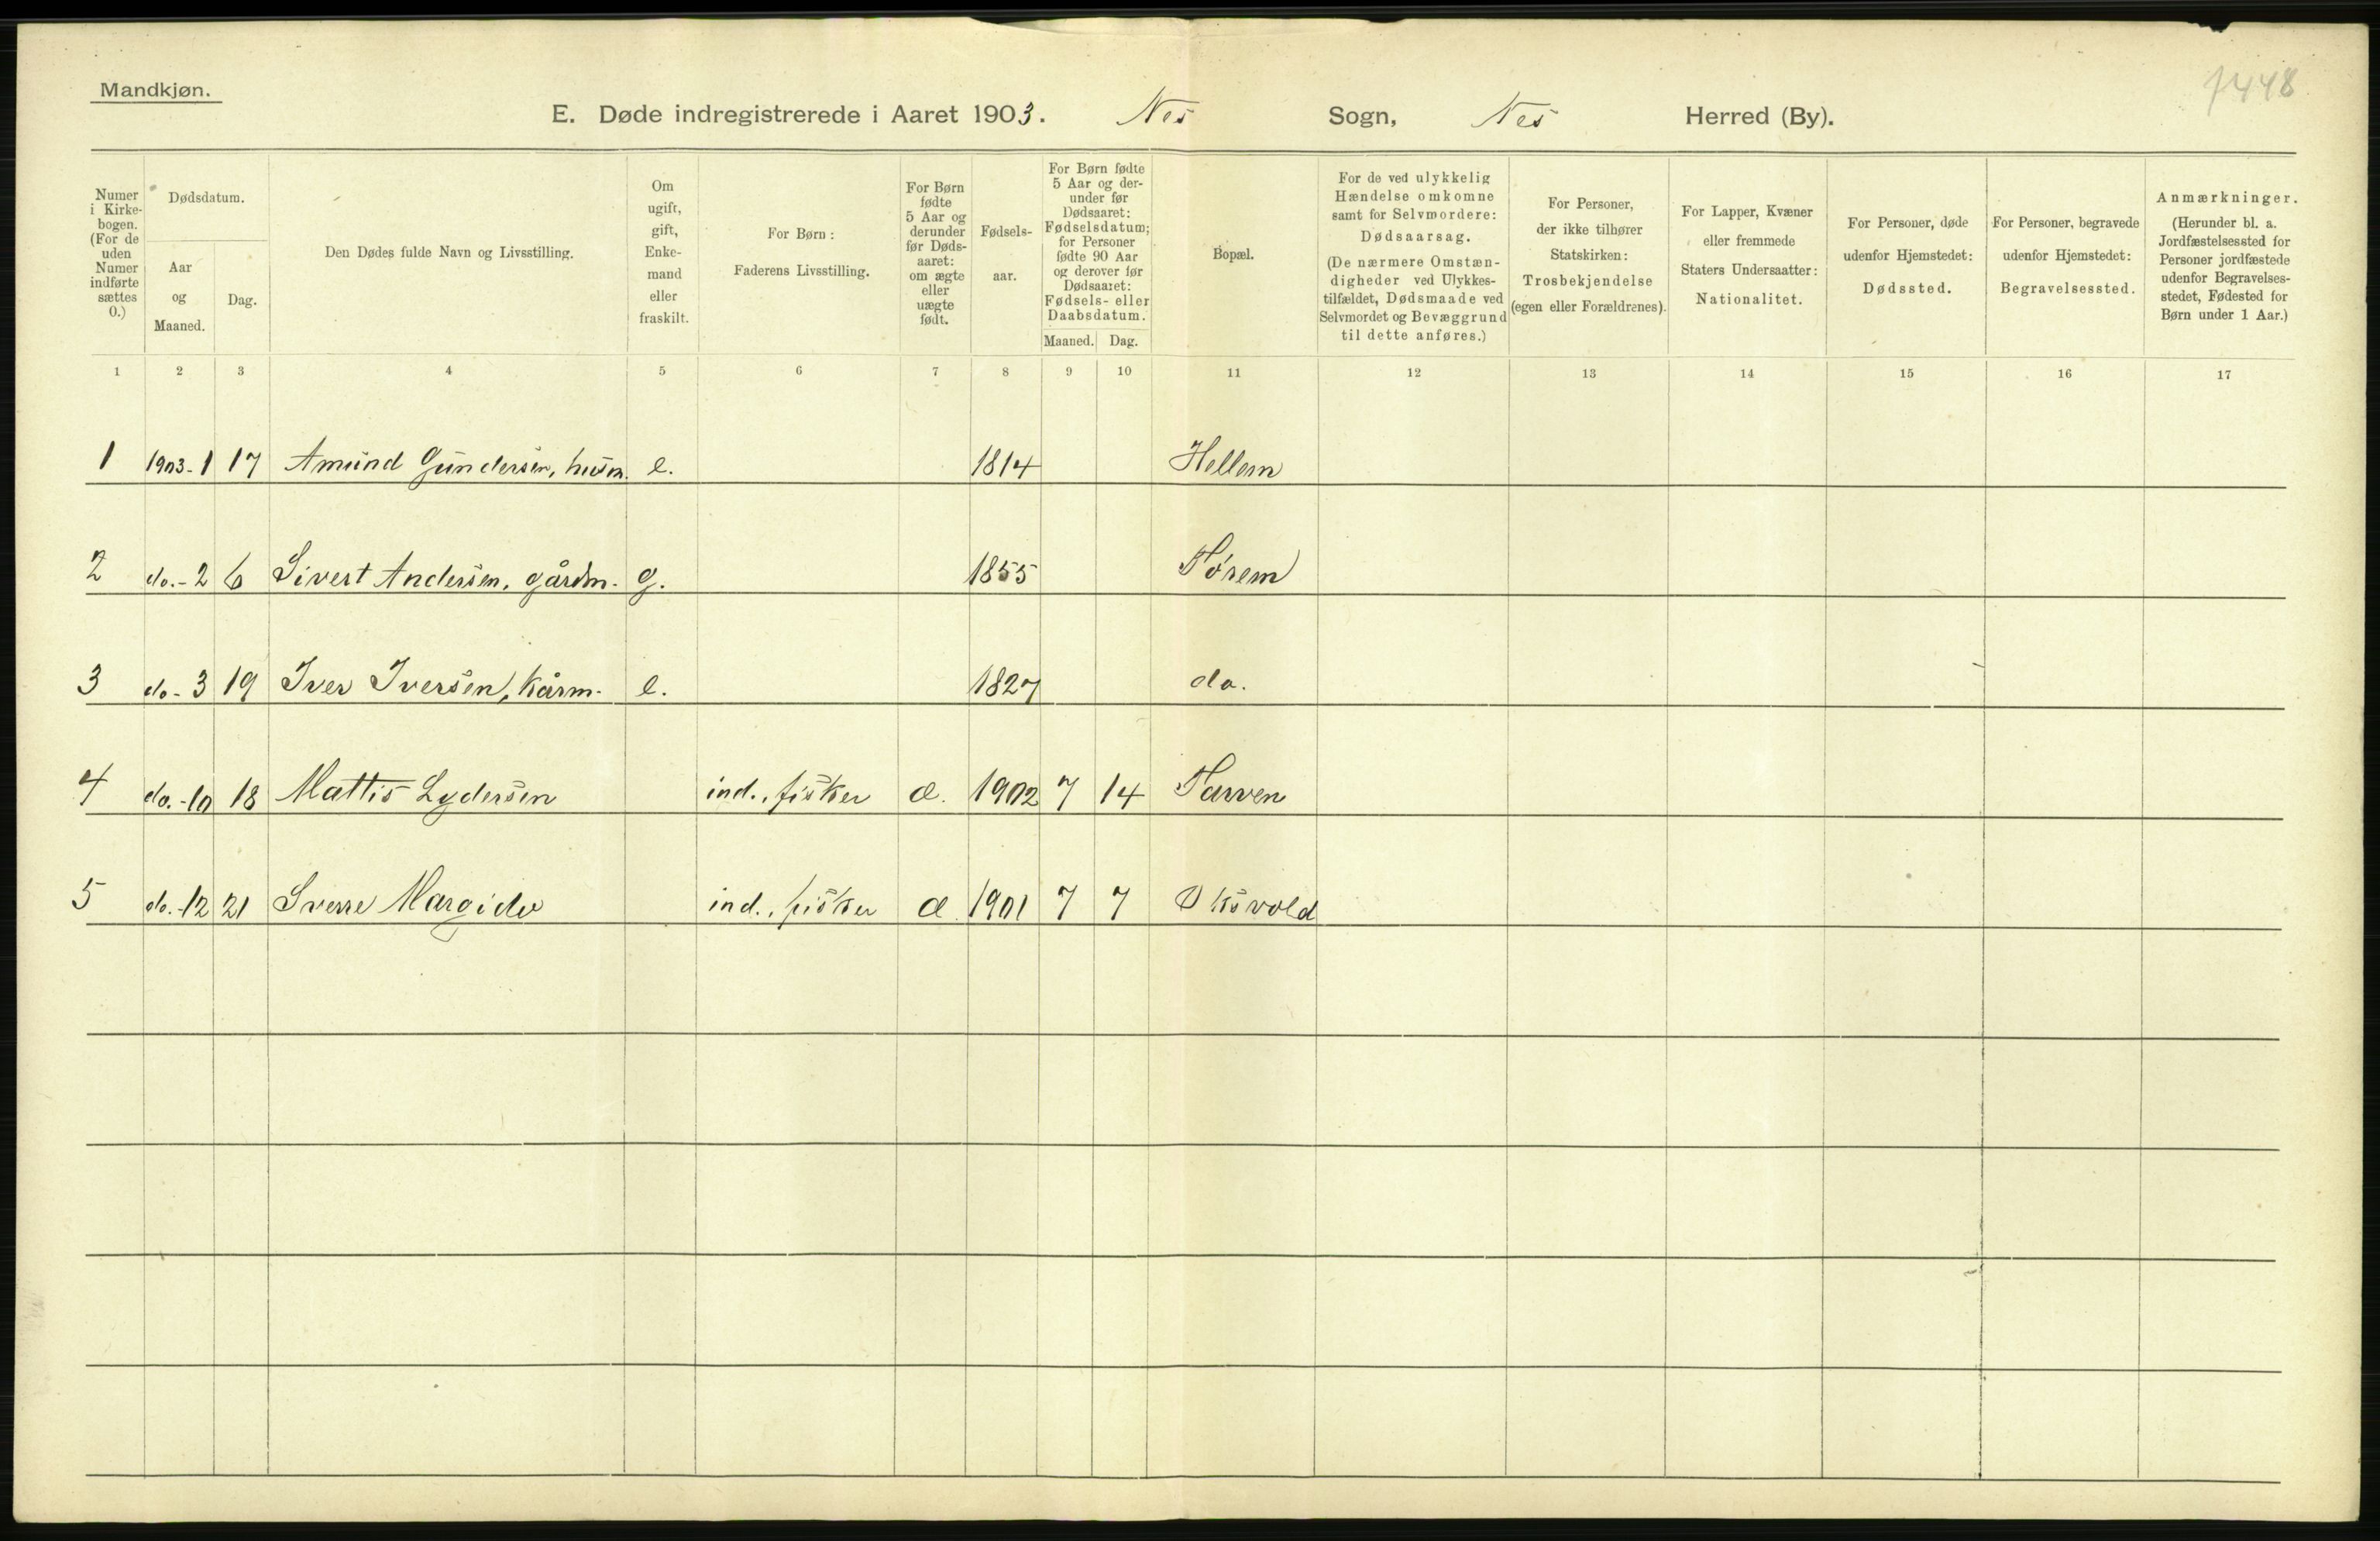 Mandkjøn.
7448
E. Døde indregistrerede i Aaret 1903. Nes Sogn, Nes Herred (By).
Numer i Kirke-bogen. (For de uden Numer indførte sættes 0.)
Dødsdatum.
Aar og Maaned.
Dag.
Den Dødes fulde Navn og Livsstilling.
Om ugift, gift, Enke-mand eller fraskilt.
For Børn: Faderens Livsstilling.
For Børn fødte 5 Aar og derunder før Døds-aaret: om ægte eller uægte født.
Fødsels-aar.
For Børn fødte 5 Aar og der-under før Dødsaaret: Fødselsdatum; for Personer fødte 90 Aar og derover før Dødsaaret: Fødsels- eller Daabsdatum.
Maaned. Dag.
Bopæl.
For de ved ulykkelig Hændelse omkomne samt for Selvmordere: Dødsaarsag. (De nærmere Omstæn-digheder ved Ulykkes-tilfældet, Dødsmaade ved Selvmordet og Bevæggrund til dette anføres.)
For Personer, der ikke tilhører Statskirken: Trosbekjendelse (egen eller Forældrenes).
For Lapper, Kvæner eller fremmede Staters Undersaatter: Nationalitet.
For Personer, døde udenfor Hjemstedet: Dødssted.
For Personer, begravede udenfor Hjemstedet: Begravelsessted.
Anmærkninger. (Herunder bl. a. Jordfæstelsessted for Personer jordfæstede udenfor Begravelses-stedet, Fødested for Børn under 1 Aar.)
1 2 3 4 5 6 7 8 9 10 11 12 13 14 15 16 17
1 1903-1 17 Amund Gundersen, husm. e. 1814 Hellem
2 do.-2 6 Sivert Andersen, gårdm. g. 1855 Tørem
3 do-3 19 Iver Iversen, kårm. e. 1827 do.
4 do.-10 18 Mattis Lydersen ind., fisker æ. 1902 7 14 Tarven
5 do.-12 21 Sverre Margido ind., fisker æ 1901 7 7 Oksvold